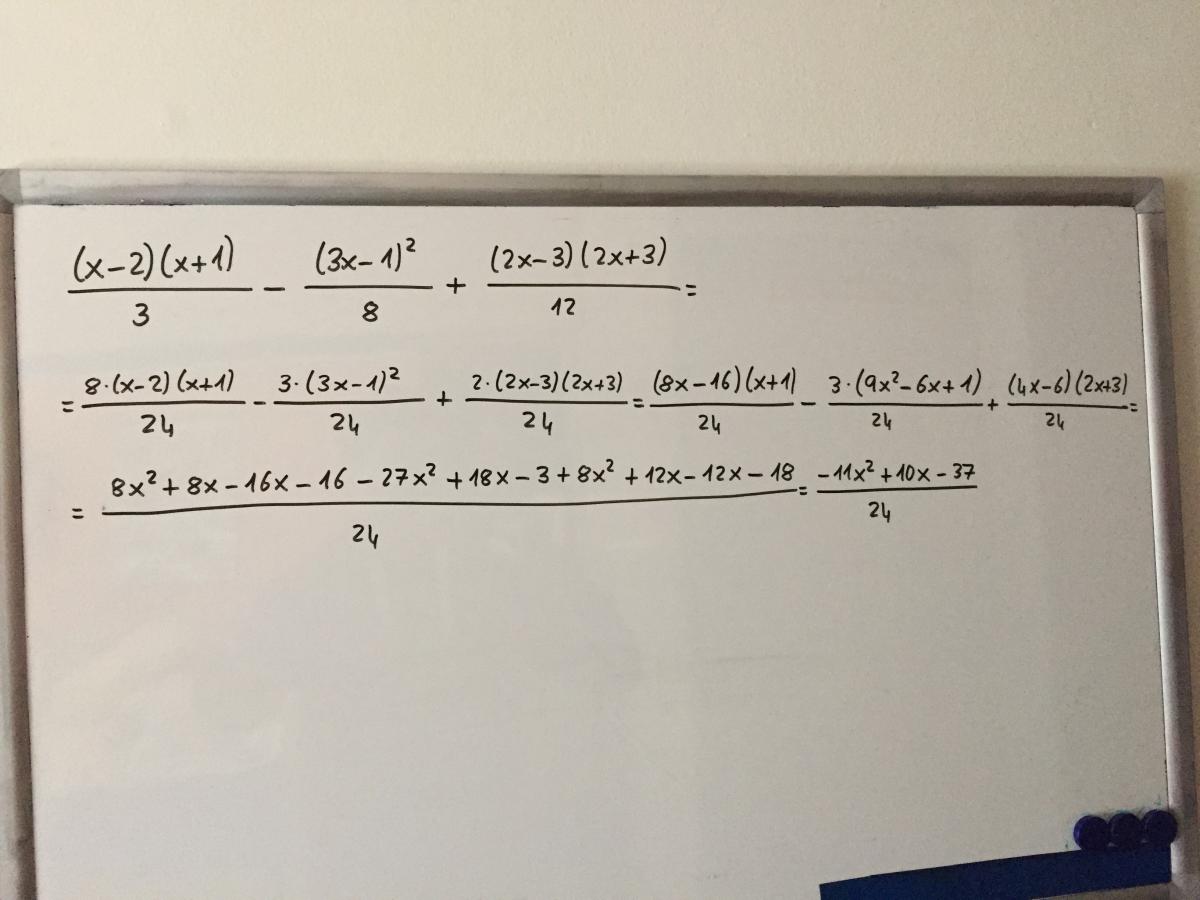 (x-2)(x+1)/3 - (3x-1)²/8 + (2x-3)(2x+3)/12 =
= 8·(x-2)(x+1)/24 - 3·(3x-1)²/24 + 2·(2x-3)(2x+3)/24 = (8x-16)(x+1)/24 - 3·(9x²-6x+1)/24 + (4x-6)(2x+3)/24 =
= (8x²+8x-16x-16-27x²+18x-3+8x²+12x-12x-18)/24 = (-11x²+10x-37)/24